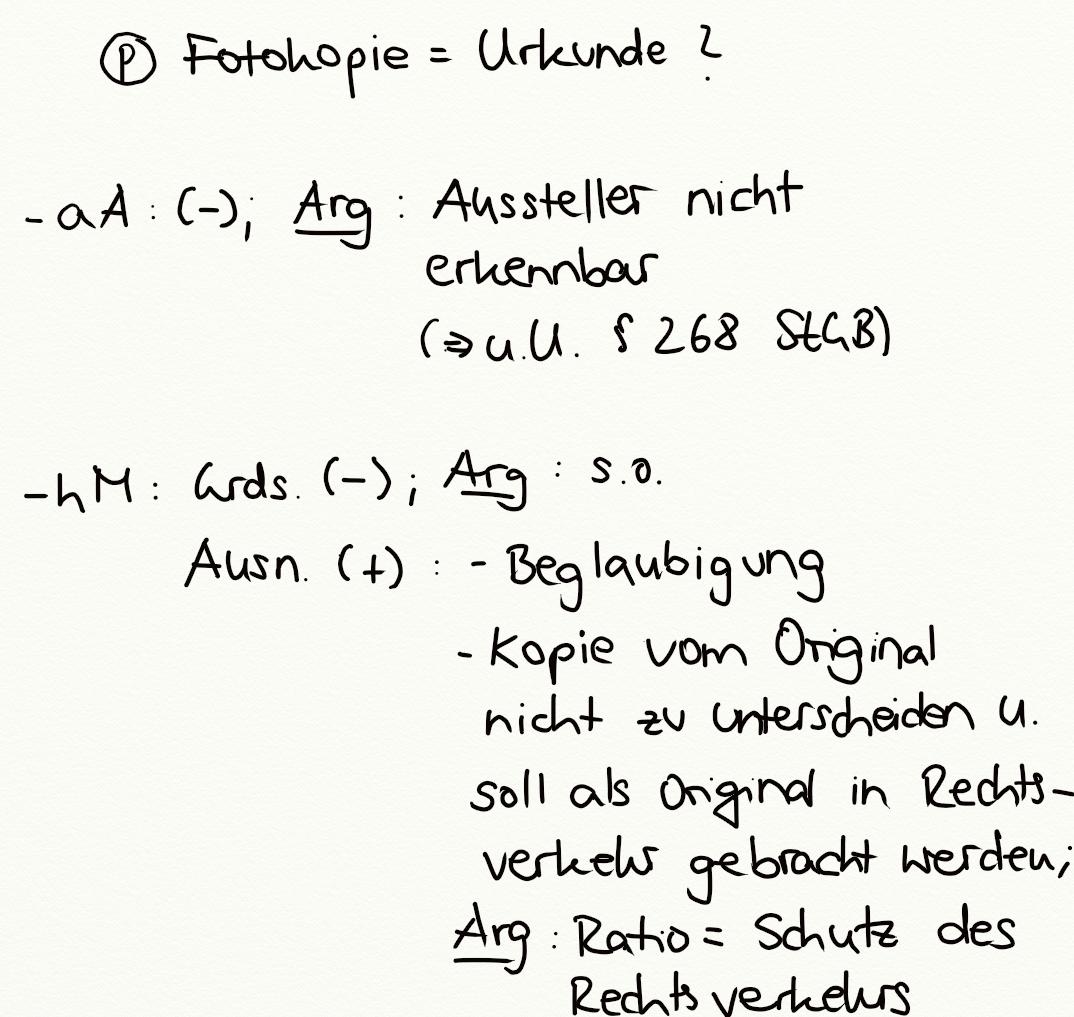 Ⓟ Fotokopie = Urkunde ?
- aA : (-); Arg : Aussteller nicht
erkennbar
(⇒ u.U. § 268 StGB)
- hM : Grds. (-); Arg : s.o.
Ausn. (+) : - Beglaubigung
- Kopie vom Original
nicht zu unterscheiden u.
soll als Original in Rechts-
verkehr gebracht werden;
Arg : Ratio = Schutz des
Rechtsverkehrs